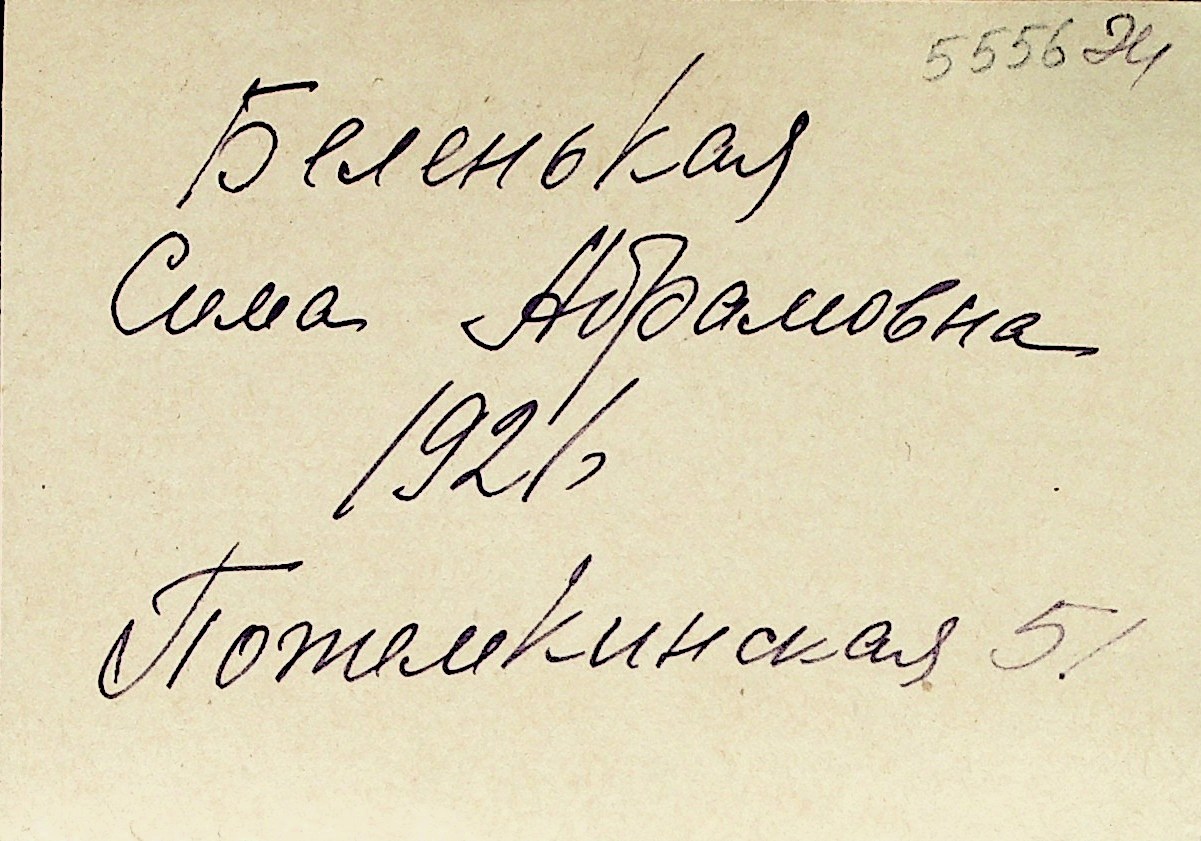 5556 Эч
Беленькая
Сима Абрамовна
1921
Потемкинская 51